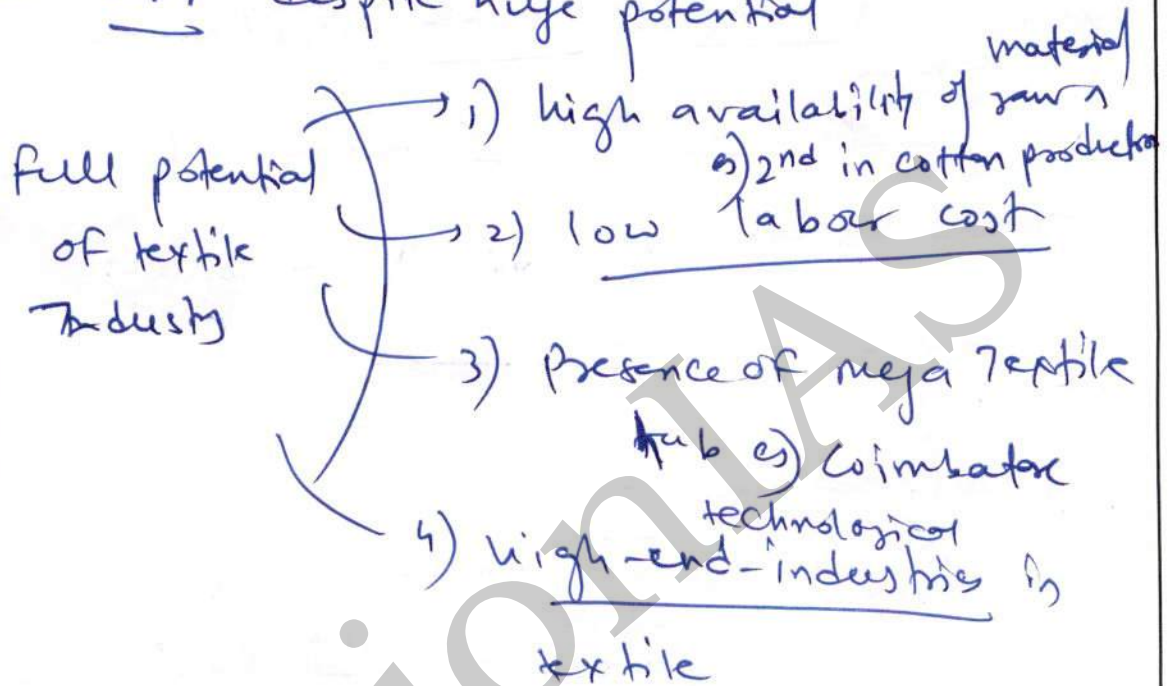 despite huge potential
full potential
of textile
Industry
1) high availability of raw material
eg) 2nd in cotton production
2) low labour cost
3) Presence of mega Textile
hub eg) Coimbatore
4) high-end-technological industries in
textile
ionIAS